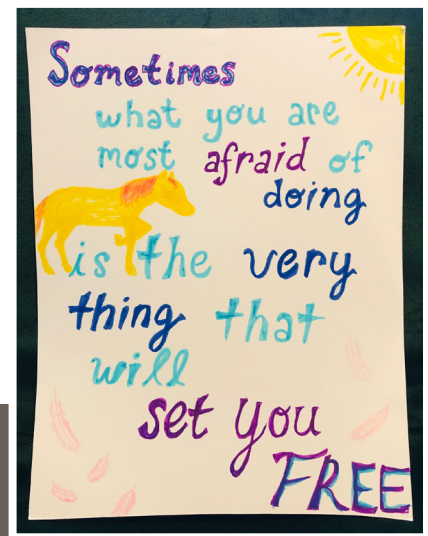 Sometimes
what you are
most afraid of
doing
is the very
thing that
will
set you
FREE